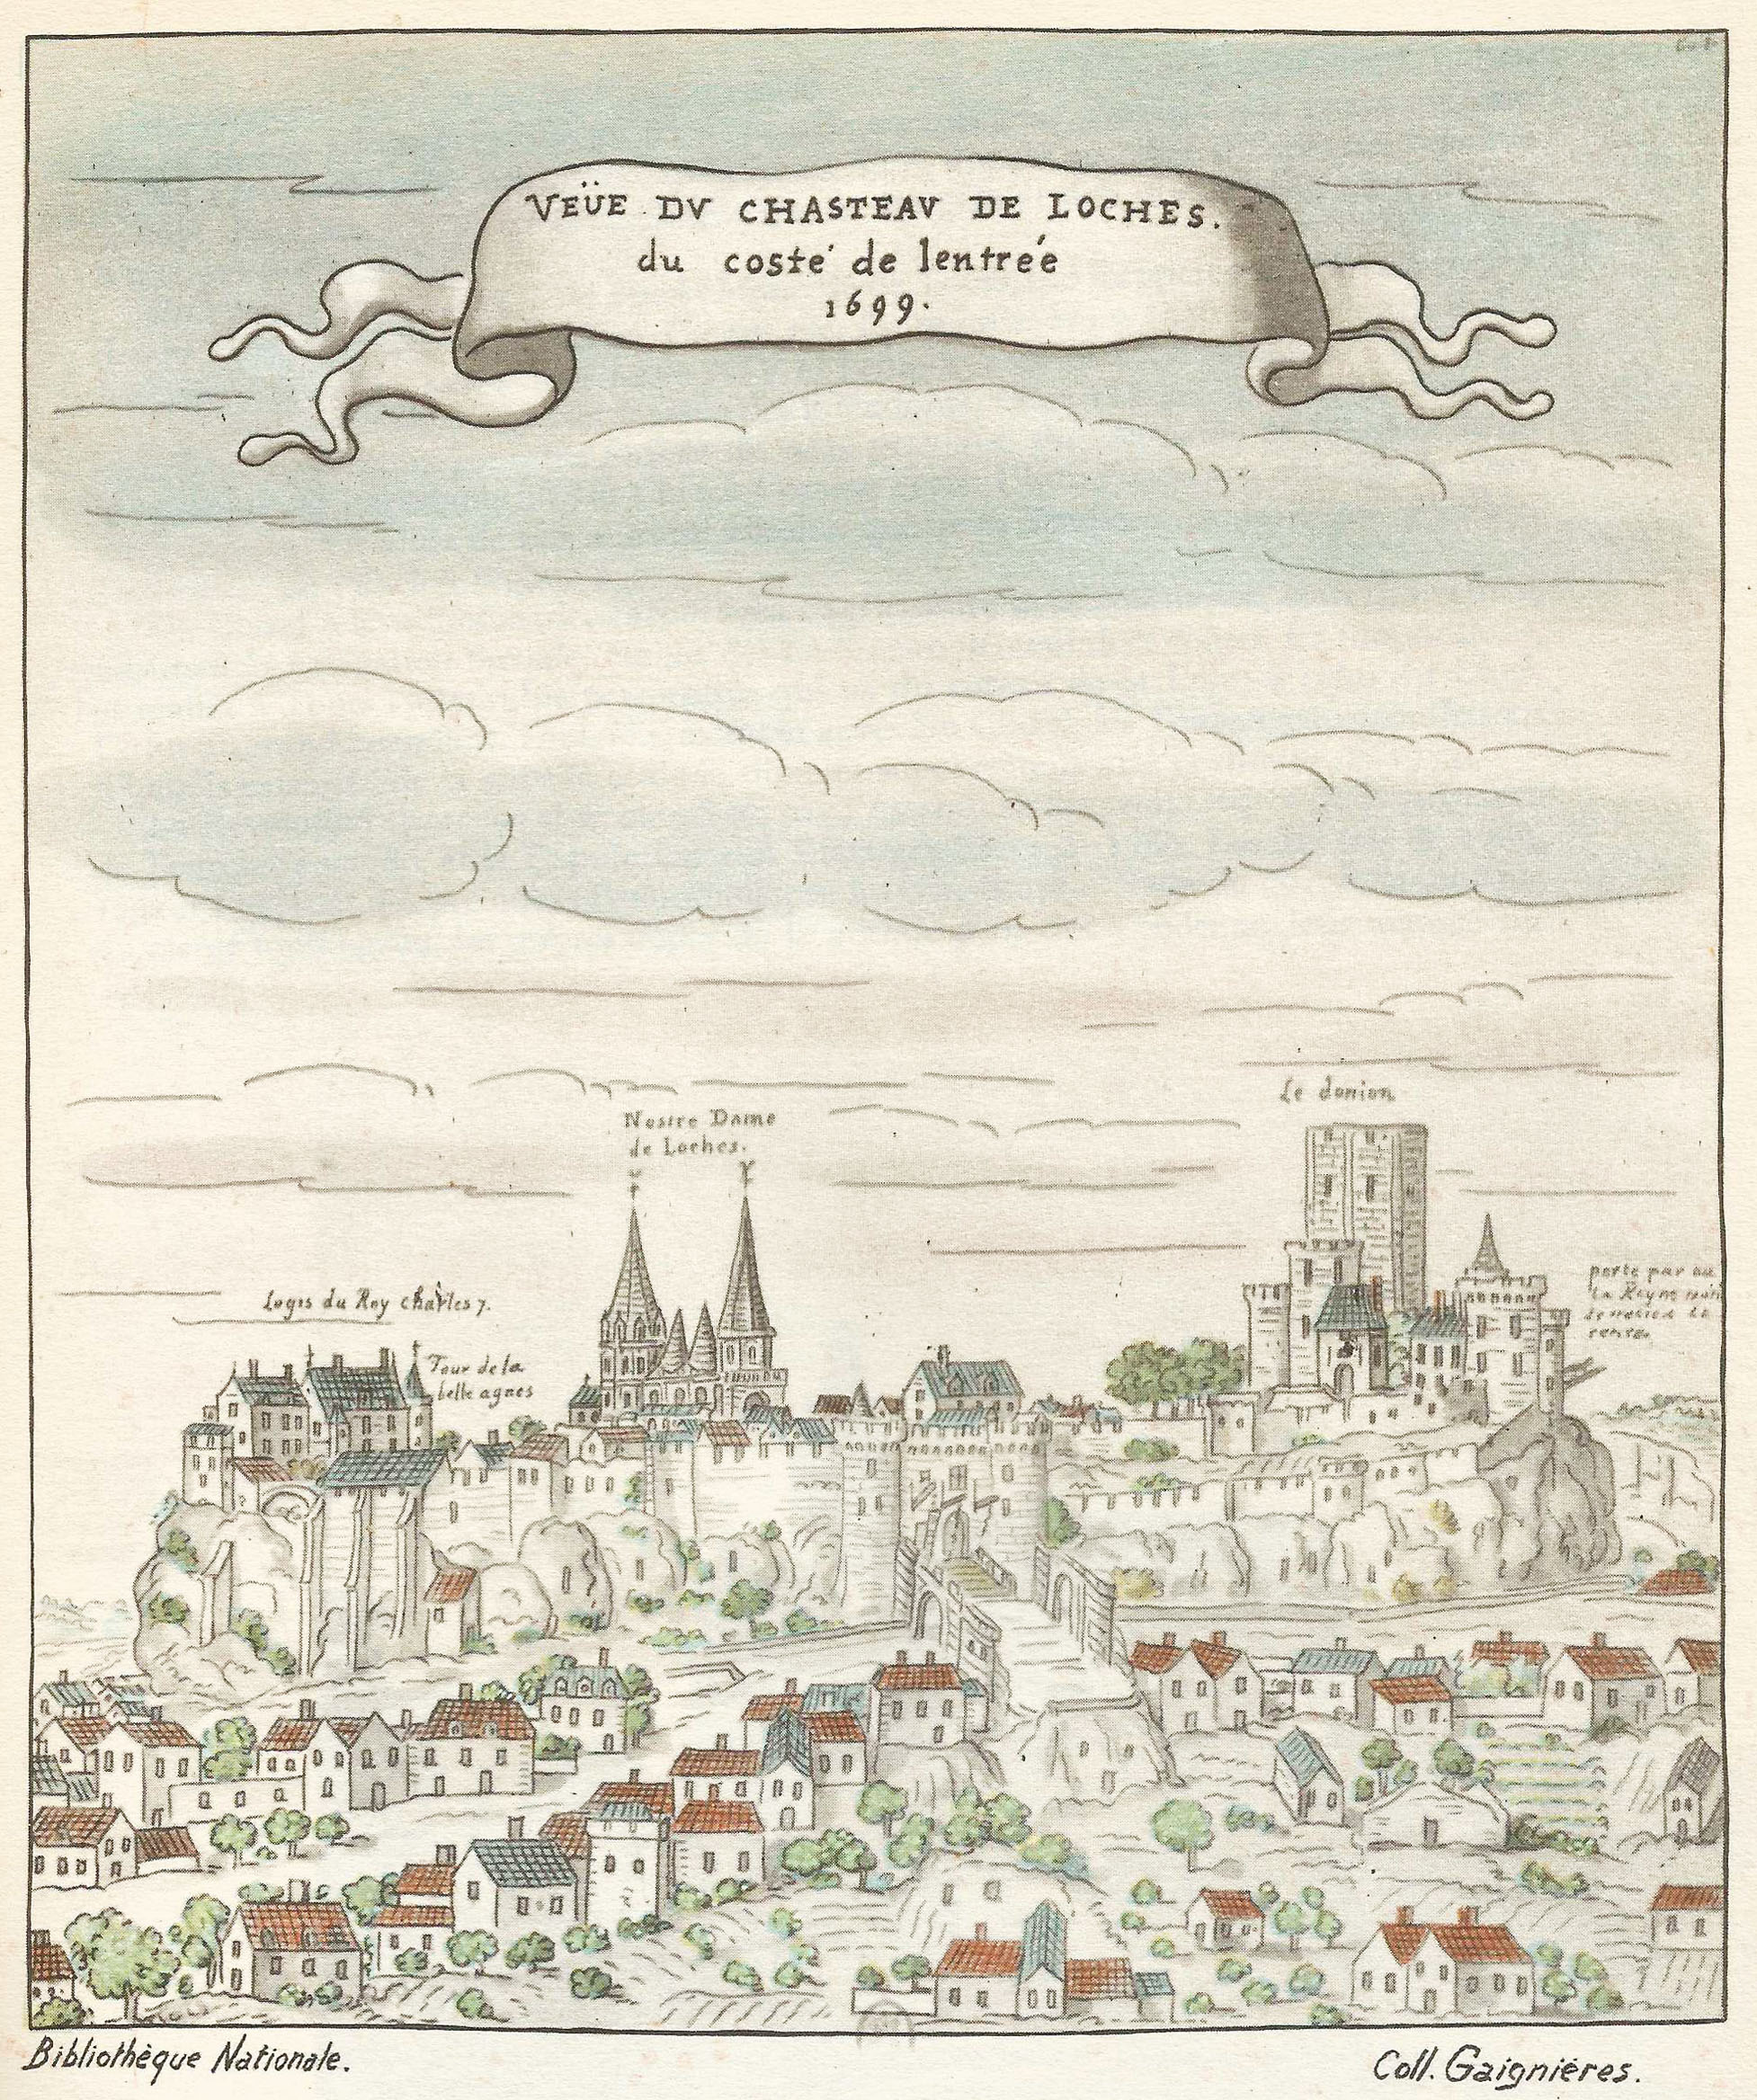 VEÜE DV CHASTEAV DE LOCHES.
du costé de lentrée
1699.
Le donion
Nostre Dame
de Loches.
porte par ou
la Reyne
Logis du Roy charles 7.
Tour de la
belle agnes
Bibliothèque Nationale.
Coll. Gaignières.